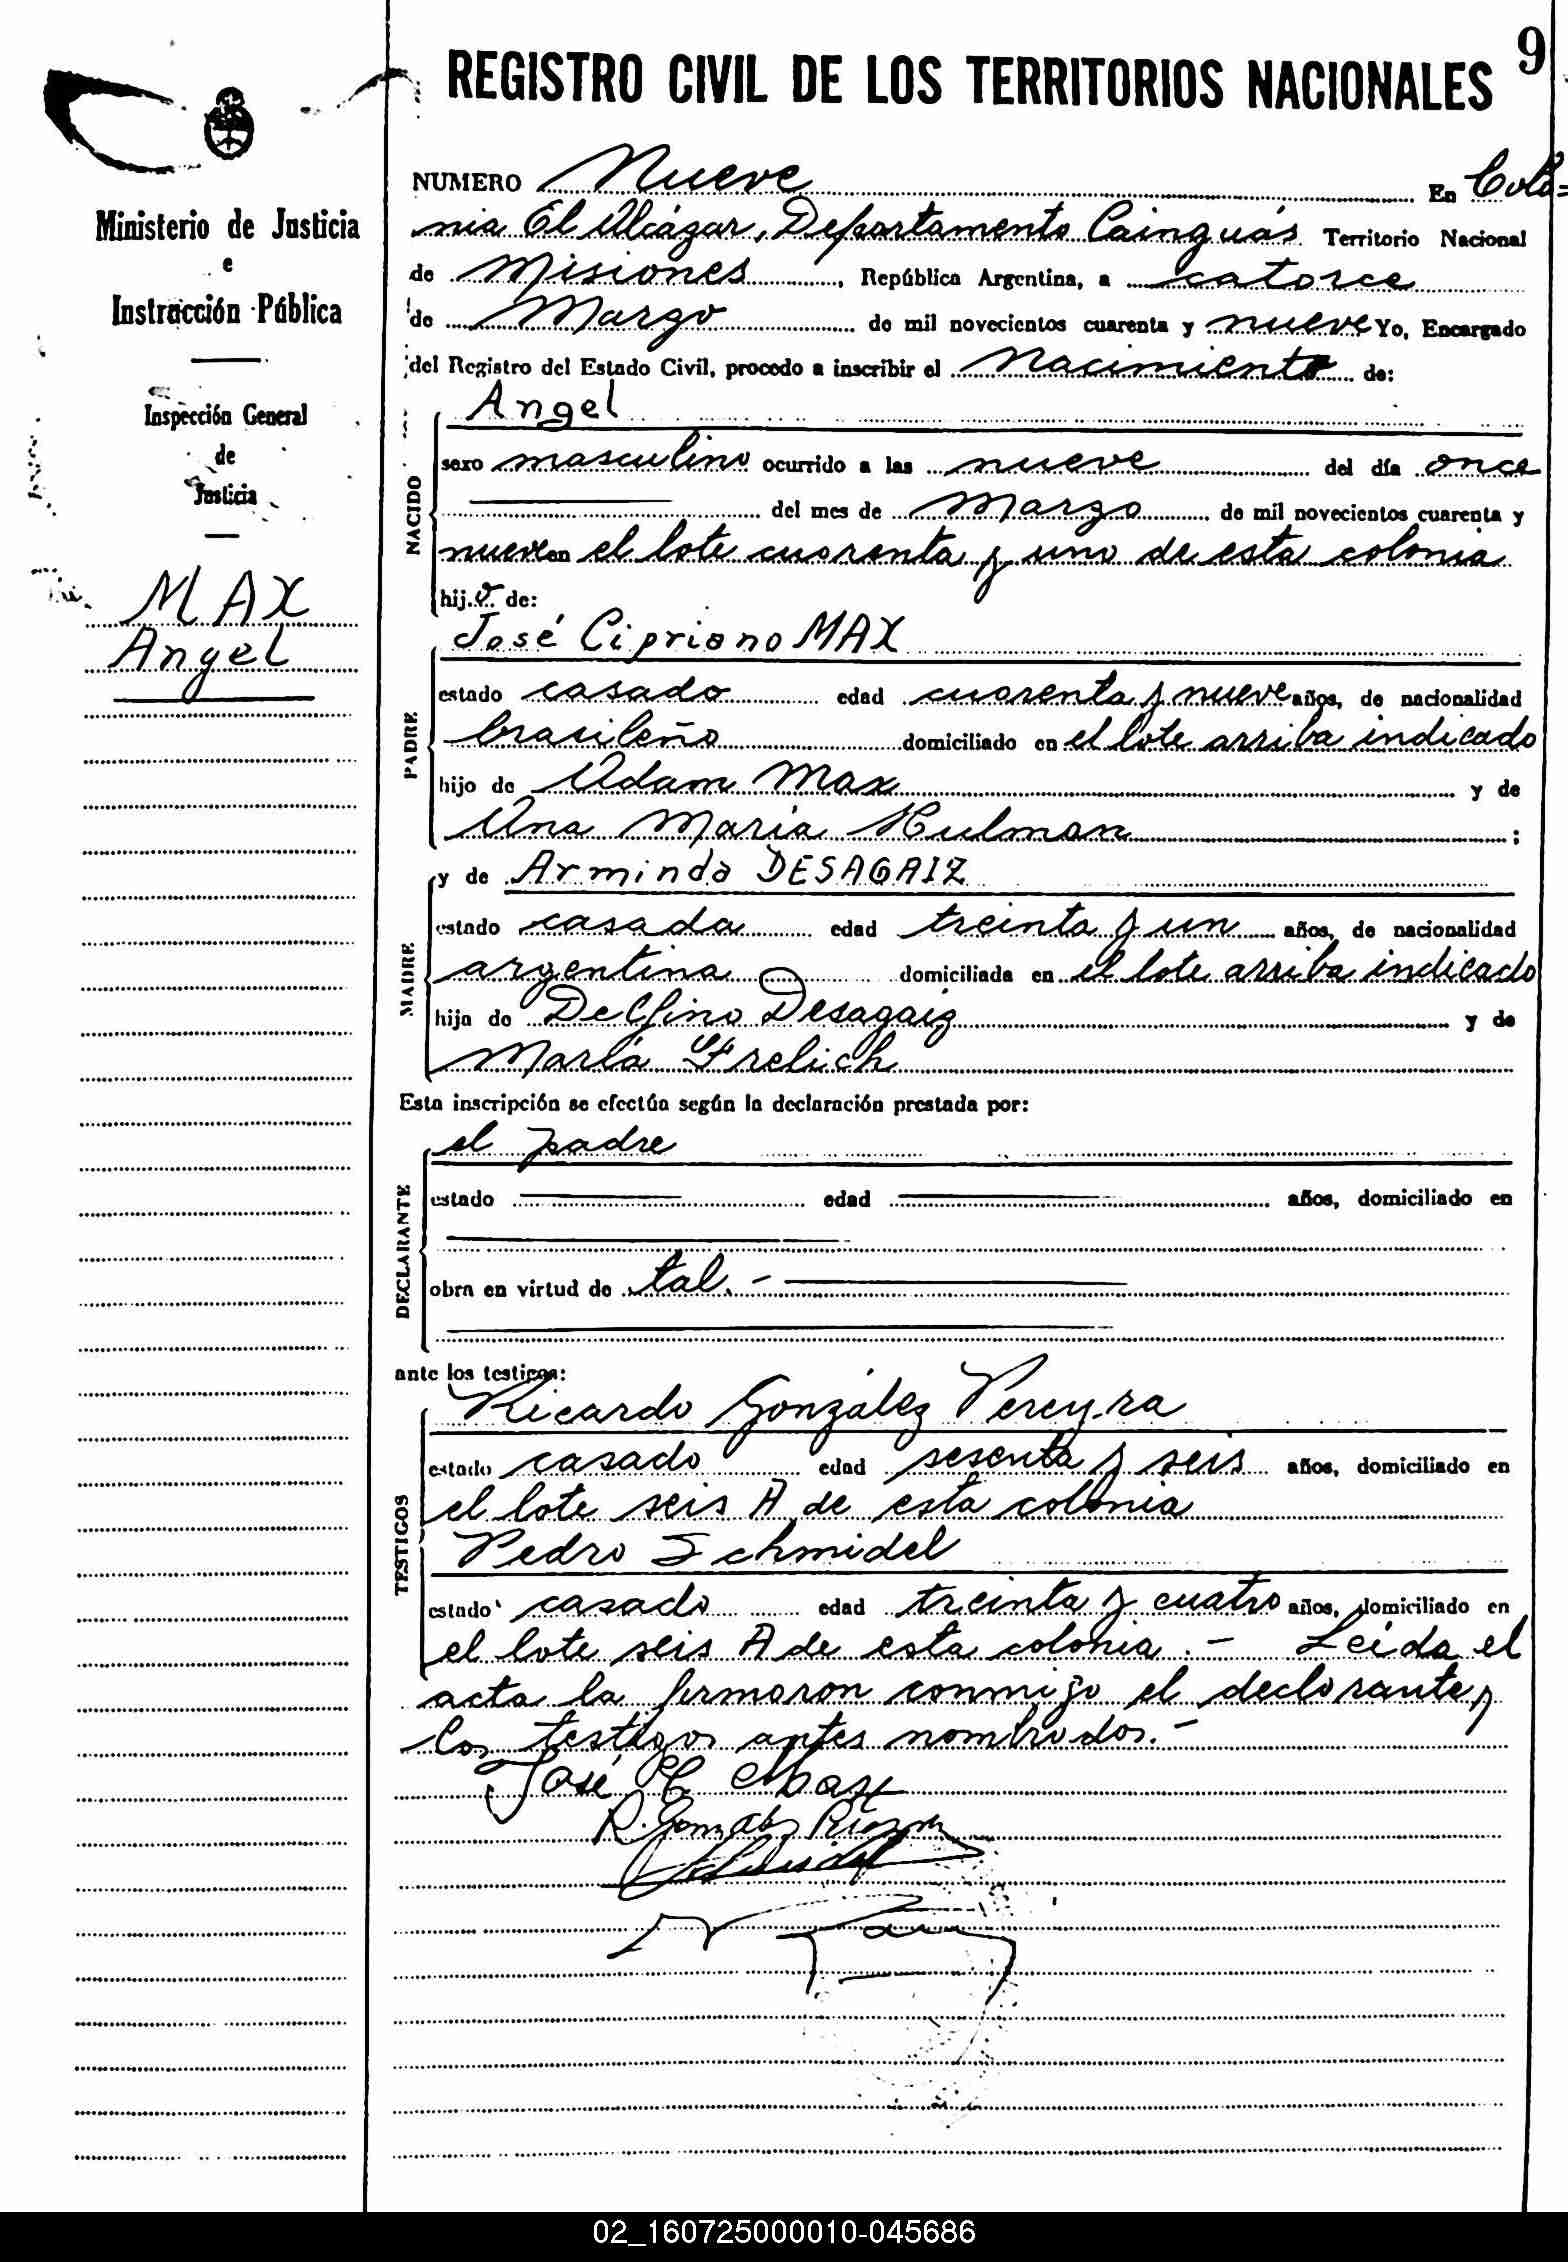 9
REGISTRO CIVIL DE LOS TERRITORIOS NACIONALES
Ministerio de Justicia
e
Instrucción Pública
Inspección General
de
Justicia
MAX
Angel
NUMERO Nueve En Colo=
nia El Alcázar, Departamento Cainguás Territorio Nacional
de Misiones, República Argentina, a catorce
de Marzo de mil novecientos cuarenta y nueve Yo, Encargado
del Registro del Estado Civil, procedo a inscribir el Nacimiento de:
NACIDO
Angel
sexo masculino ocurrido a las nueve del día once
del mes de Marzo de mil novecientos cuarenta y
nueve en el lote cuarenta y uno de esta colonia
hijo de:
PADRE
José Cipriano MAX
estado casado edad cuarenta y nueve años, de nacionalidad
brasileño domiciliado en el lote arriba indicado
hijo de Adam Max y de
Ana María Hulman ;
MADRE
y de Arminda DESAGAIZ
estado casada edad treinta y un años, de nacionalidad
argentina domiciliada en el lote arriba indicado
hija de Delfino Desagaiz y de
María Frelich
Esta inscripción se efectúa según la declaración prestada por:
DECLARANTE
el padre
estado edad años, domiciliado en
obra en virtud de tal.-
ante los testigos:
TESTIGOS
Ricardo González Pereyra
estado casado edad sesenta y seis años, domiciliado en
el lote seis A de esta colonia
Pedro Schmidel
estado casado edad treinta y cuatro años, domiciliado en
el lote seis A de esta colonia.- Leída el
acta la firmaron conmigo el declarante y
los testigos antes nombrados.-
José C Max
R. González
Schmidel
02_160725000010-045686